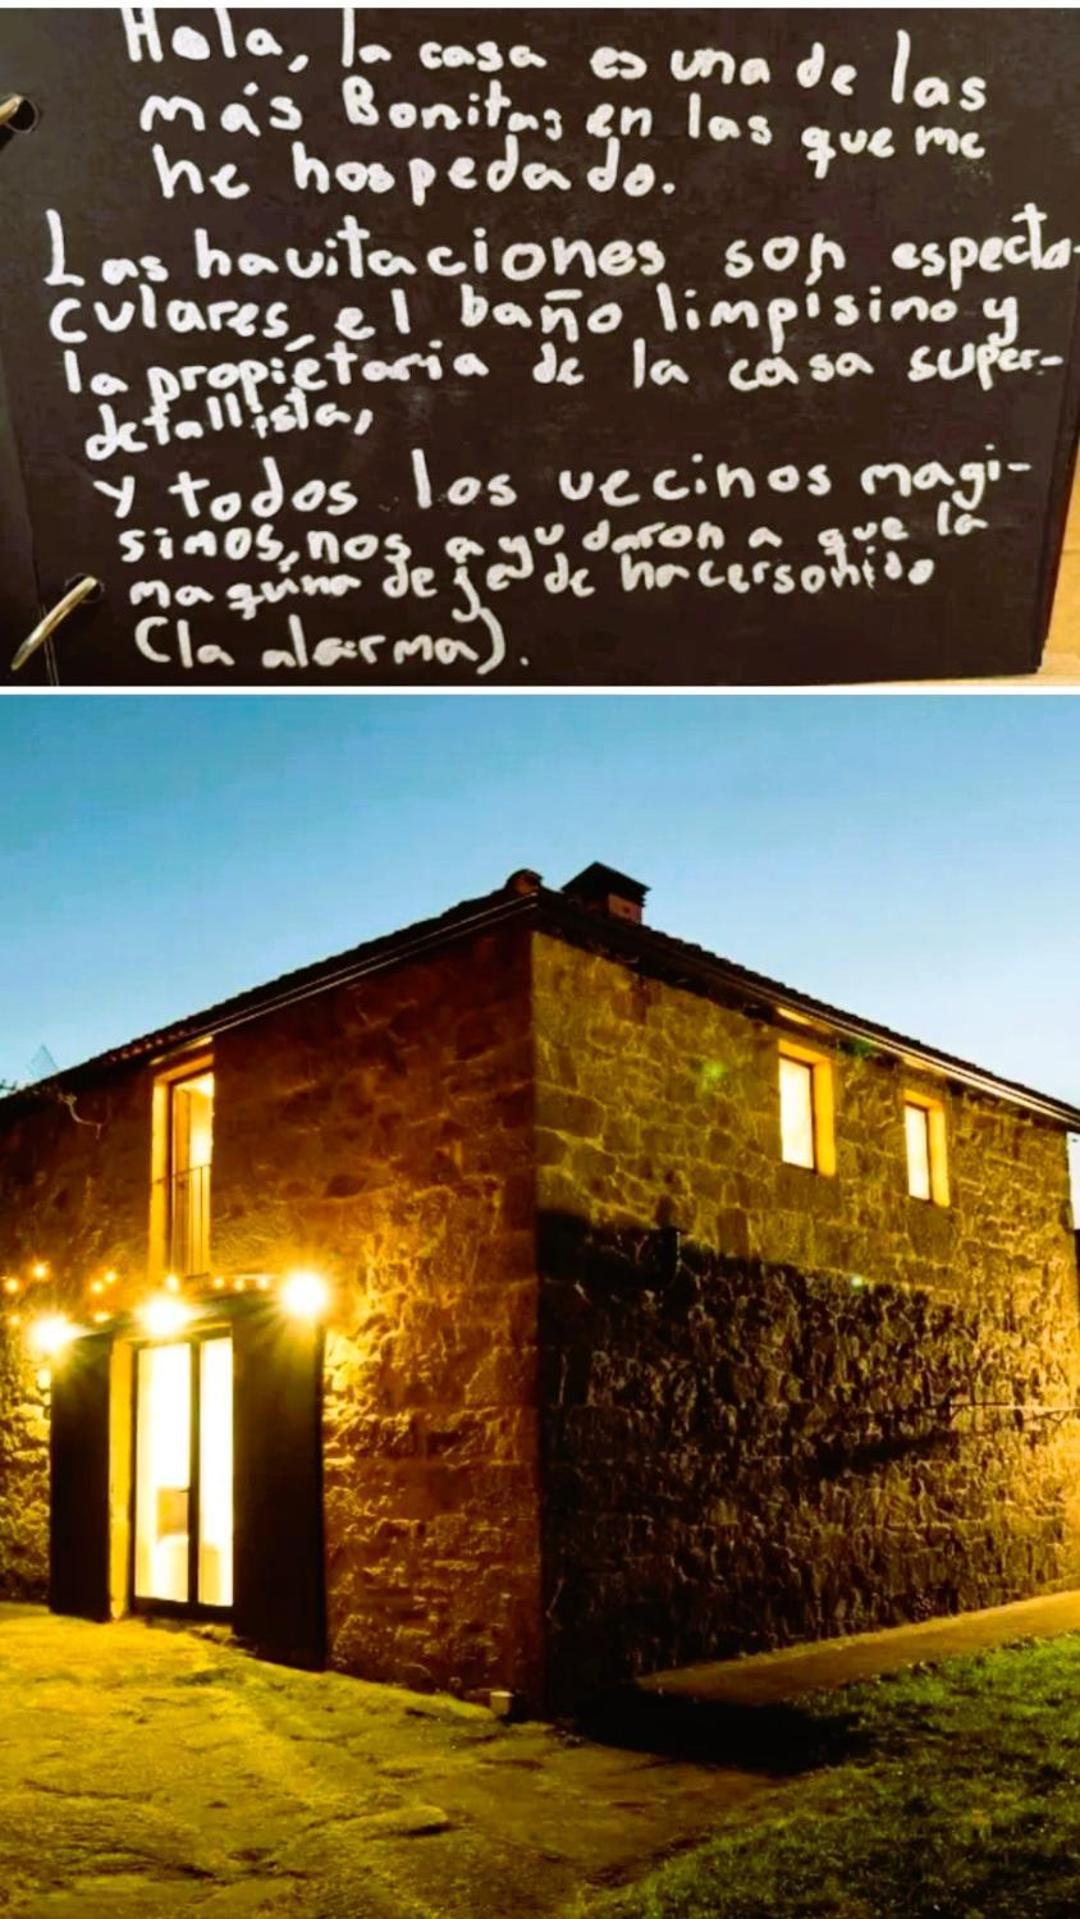 Hola, la casa es una de las
más Bonitas en las que me
he hospedado.
Las havitaciones son especta-
culares, el baño limpísimo y
la propietaria de la casa super-
detallista,
y todos los vecinos magi-
simos, nos ayudaron a que la
maquina dejad de hacer sonido
(la alarma).